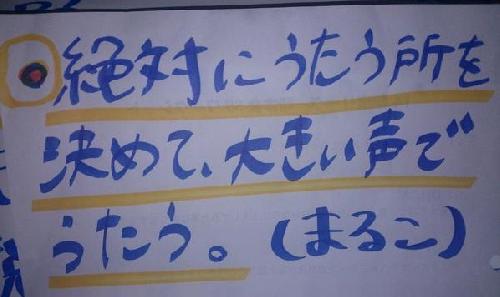 絶対にうたう所を
決めて、大きい声で
うたう。(まるこ)